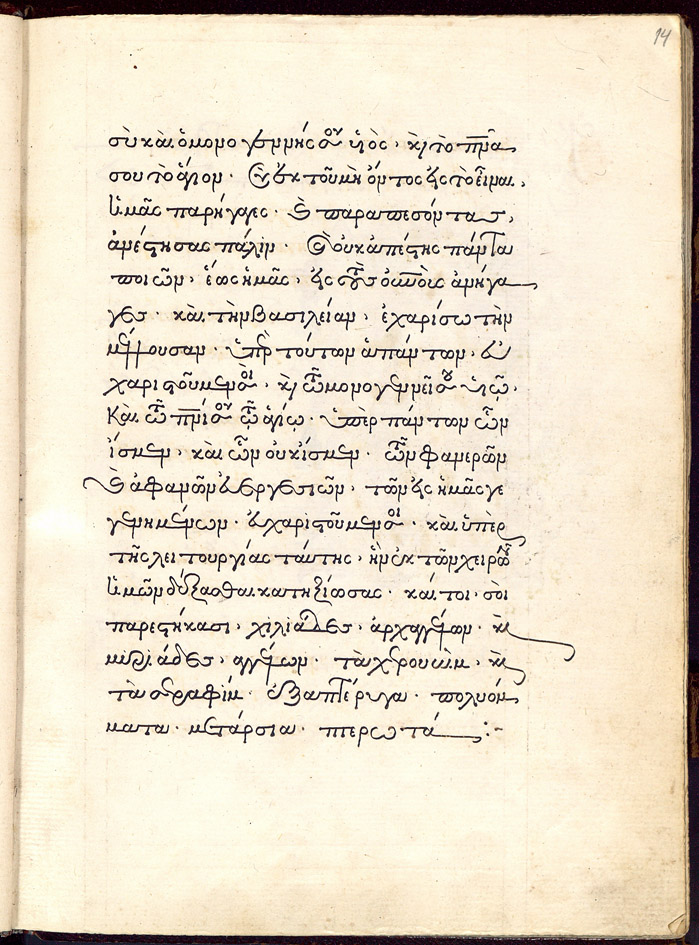 14
σὺ καὶ ὁ μονογεννής σου υἱὸς· κ(αὶ) τὸ πν(εῦμ)α
σου τὸ ἅγιον· Σὺ ἐκ τοῦ μὴ ὄντος εἰς τὸ εἶναι,
ἡμᾶς παρήγαγες· καὶ παραπεσόντας,
ἀνέστησας πάλιν· καὶ οὐκ ἀπέστης πάντα
ποιῶν, ἕως ἡμᾶς, εἰς τοὺς οὐ(ρα)νοὺς ἀνήγα
γες· καὶ τὴν βασιλείαν, ἐχαρίσω τὴν
μέλλουσαν· ὑπὲρ τούτων ἁπάντων, εὐ
χαριστοῦμέν σοι, κ(αὶ) τῷ μονογεννεῖ σου υἱῷ,
Καὶ τῷ πν(εύματ)ί σου τῷ ἁγίῳ· ὑπὲρ πάντων ὧν
ἴσμεν, καὶ ὧν οὐκ ἴσμεν· τῶν φανερῶν
καὶ ἀφανῶν εὐεργεσιῶν, τῶν εἰς ἡμᾶς γε
γενημένων· εὐχαριστοῦμέν σοι· καὶ ὑπὲρ
τῆς λειτουργίας ταύτης, ἣν ἐκ τῶν χειρῶν
ἡμῶν δέξασθαι κατηξίωσας· καί τοι σὸι
παρεστήκασι, χιλιάδες, ἀρχαγγέλων· κ(αὶ)
μυριάδες, αγγέλων· τὰ χερουβὶμ· κ(αὶ)
τὰ σεραφίμ· ἑξαπτέρυγα· πολυόμ
ματα· μετάρσια· πτερωτά :-